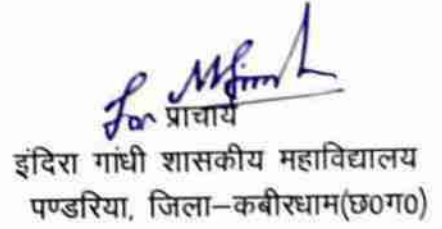 For प्राचार्य
इंदिरा गांधी शासकीय महाविद्यालय
पण्डरिया, जिला–कबीरधाम(छ0ग0)